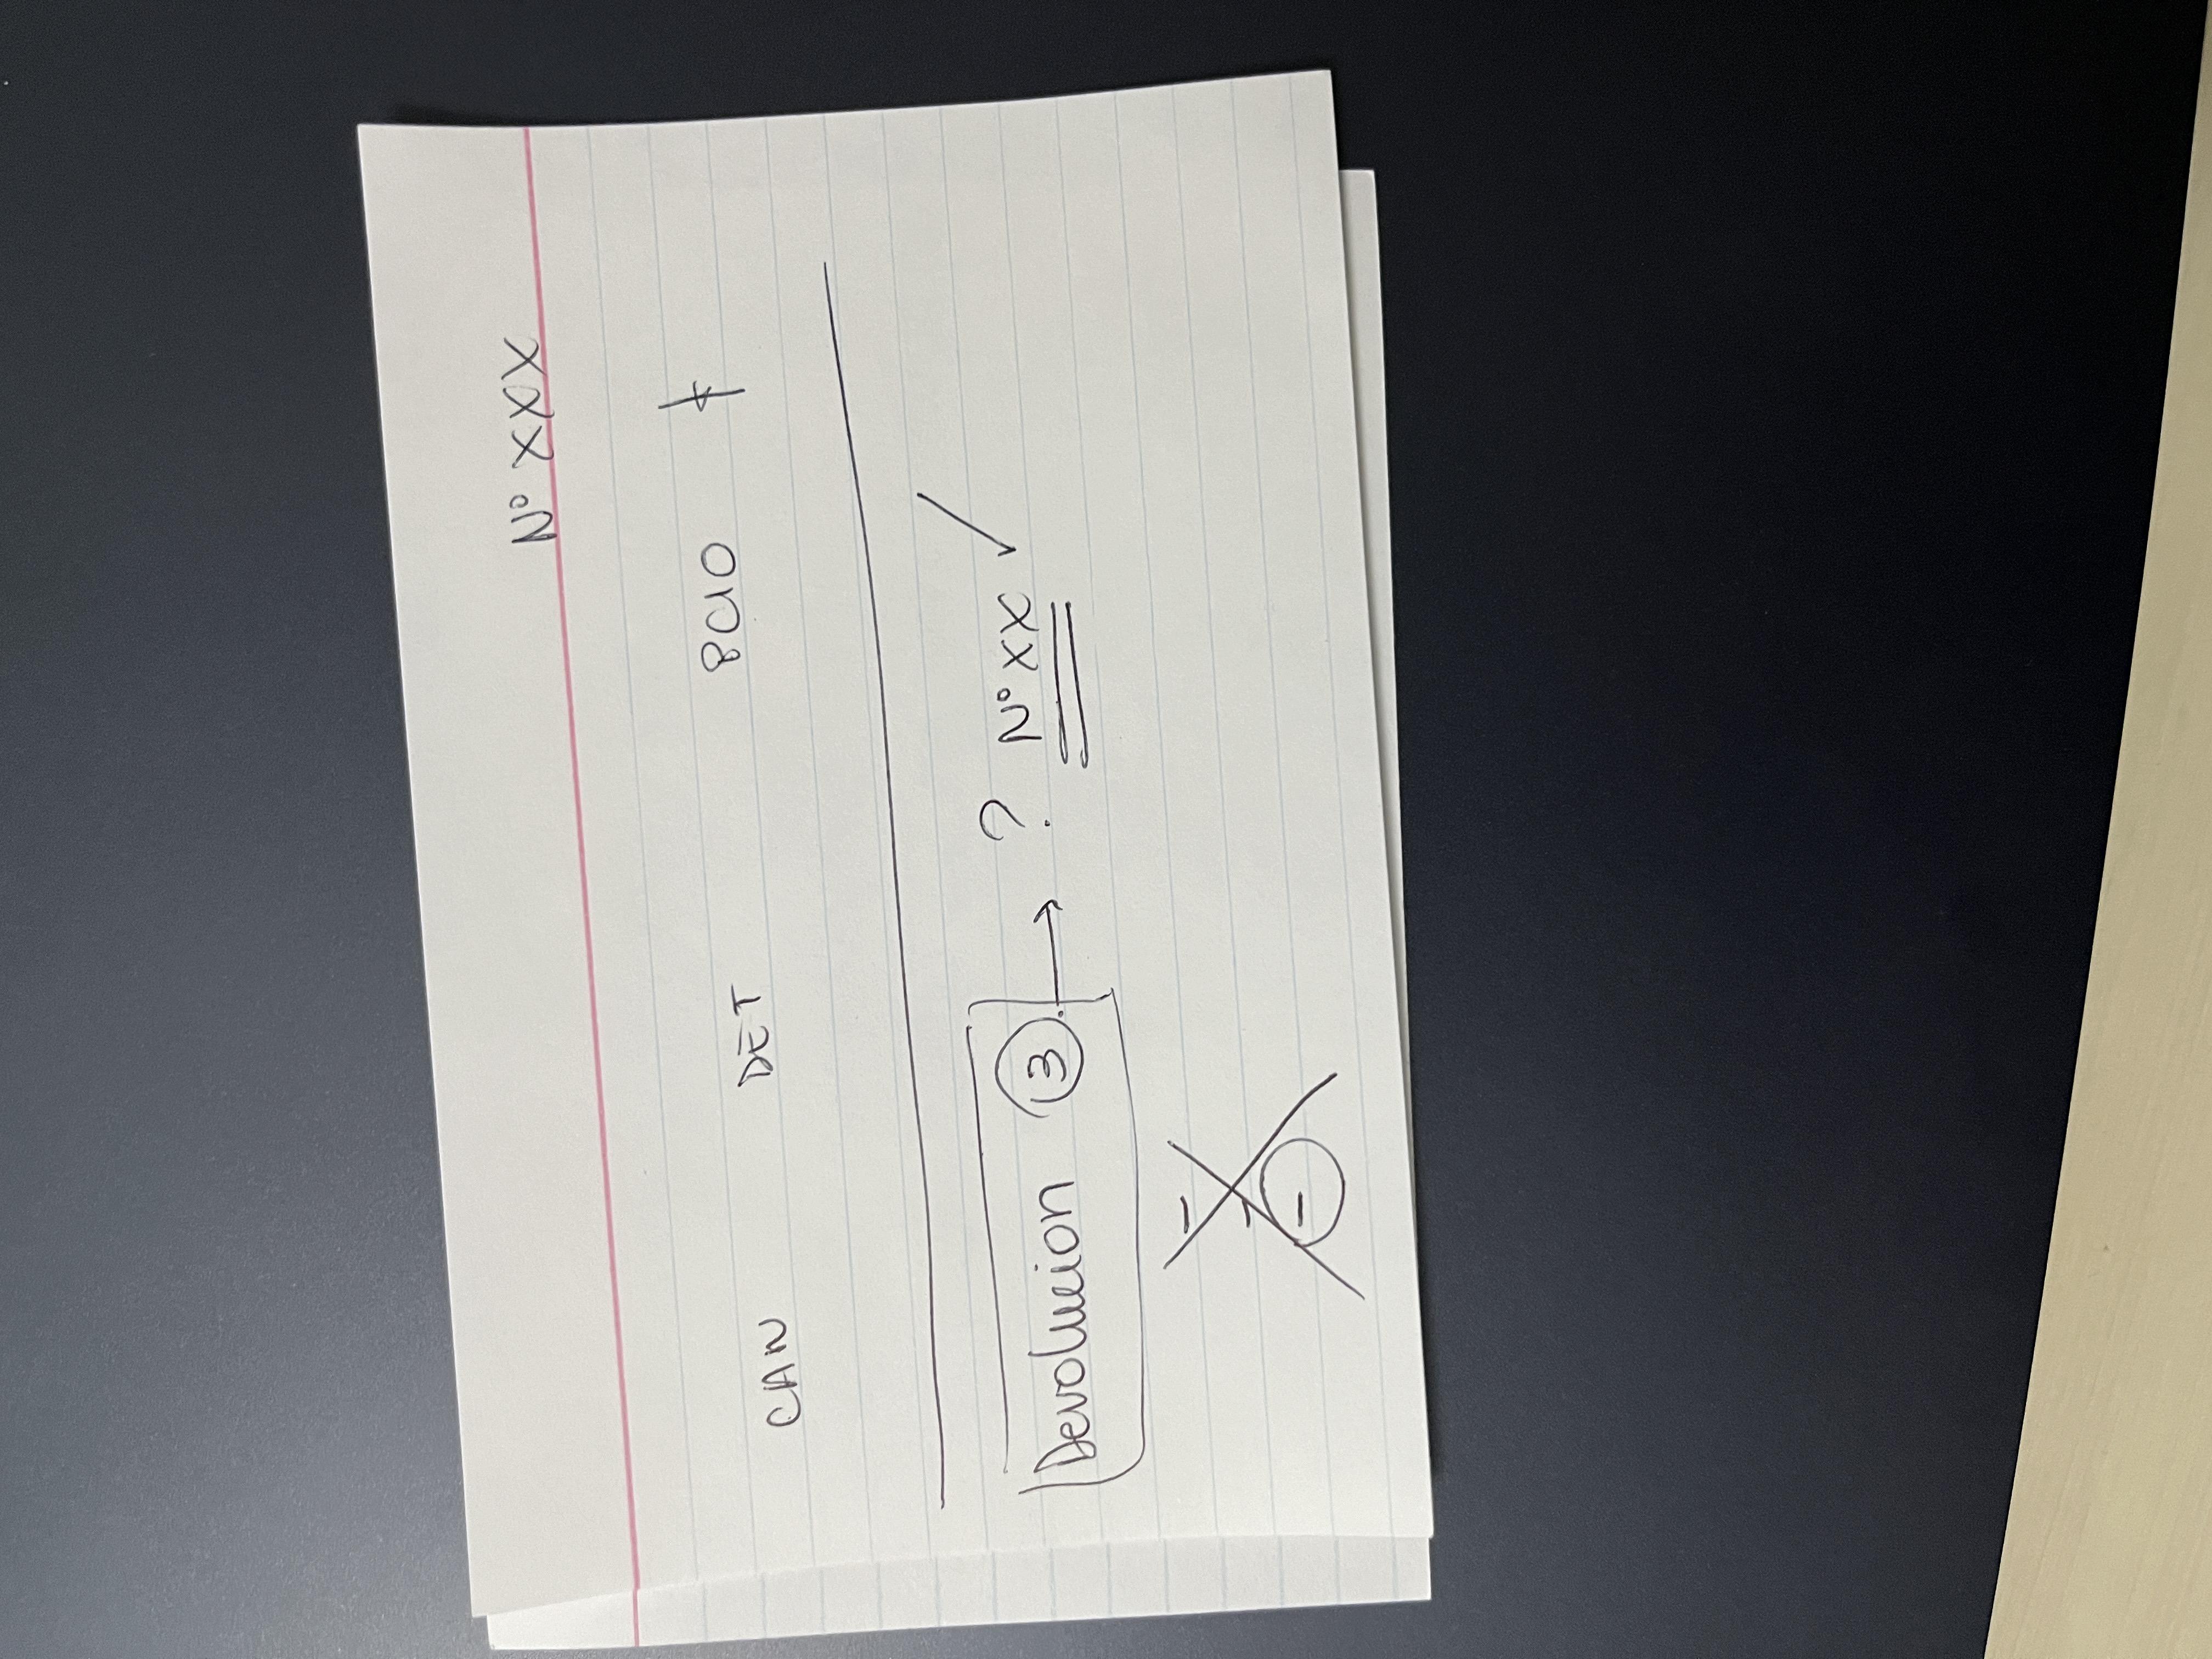 Nº XXX
CAN DET PCIO
Devolucion 3 → ? Nº XX ✓